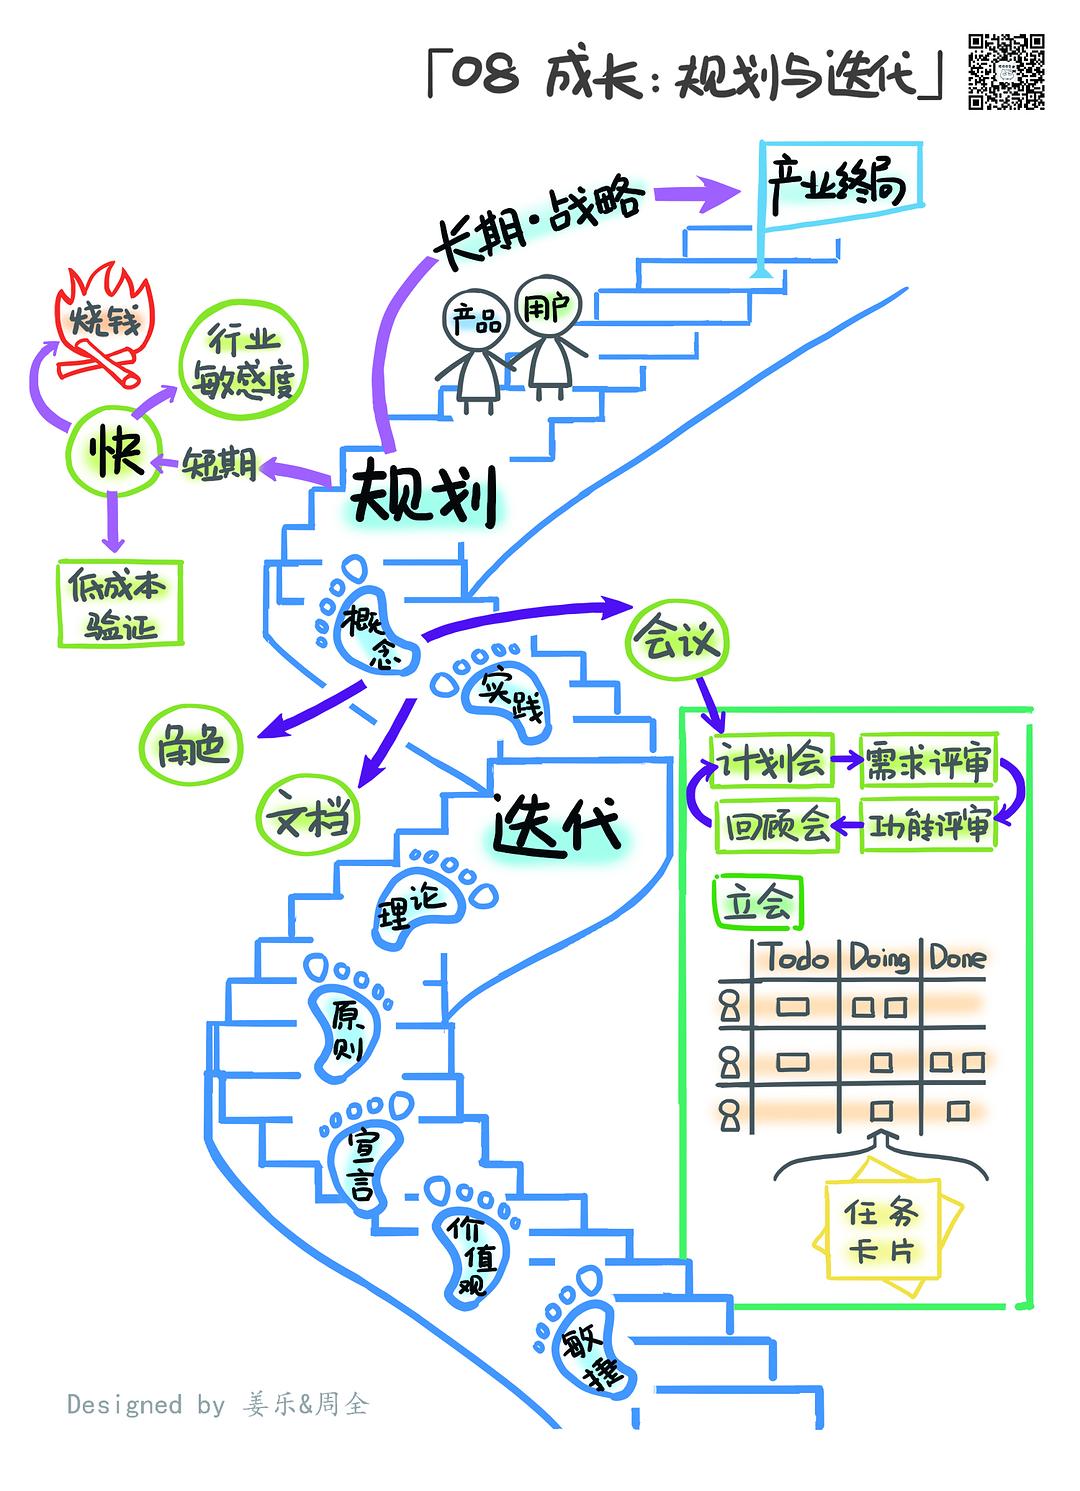 「08 成长:规划与迭代」
产业终局
长期·战略
产品
用户
烧钱
行业
敏感度
快
短期
规划
低成本
验证
概
念
实
践
会议
角色
文档
计划会
需求评审
回顾会
功能评审
迭代
理论
立会
Todo Doing Done
原
则
宣
言
价
值
观
任务
卡片
敏
捷
Designed by 姜乐&周全